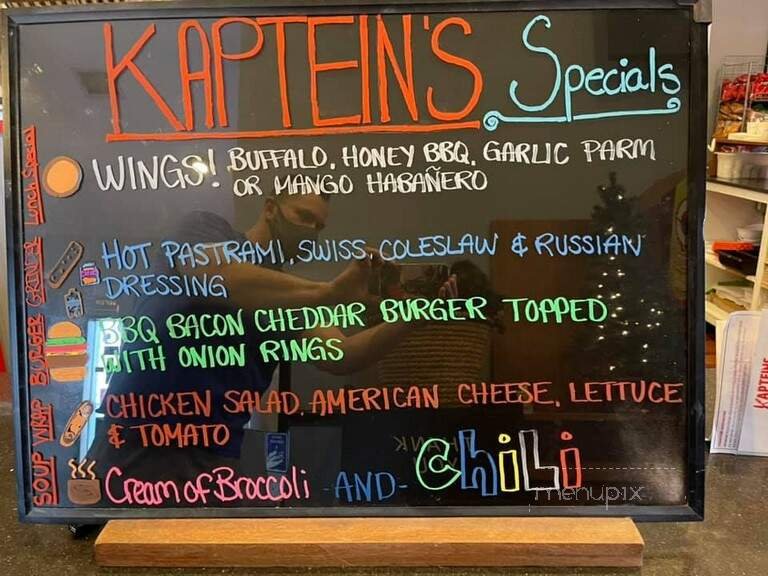 KAPTEIN'S Specials
Lunch Special
WINGS! BUFFALO, HONEY BBQ, GARLIC PARM
OR MANGO HABAÑERO
GRINDER
HOT PASTRAMI, SWISS, COLESLAW & RUSSIAN
DRESSING
BURGER
BBQ BACON CHEDDAR BURGER TOPPED
WITH ONION RINGS
WRAP
CHICKEN SALAD, AMERICAN CHEESE, LETTUCE
& TOMATO
SOUP
Cream of Broccoli -AND- CHiLi
menupix
KAPTEINS